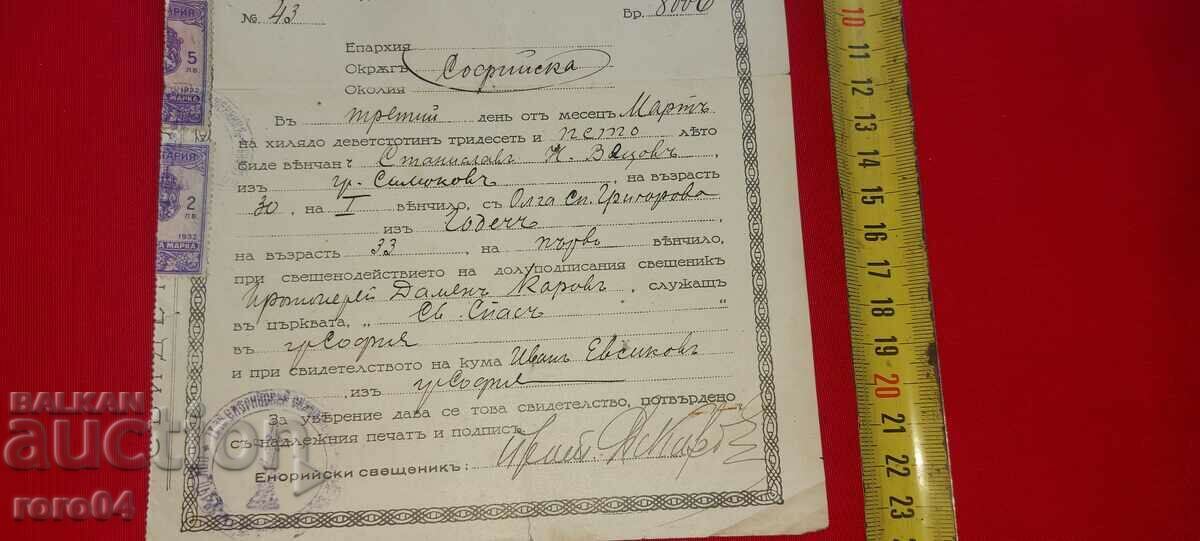 № 43 Бр. 8006
Епархия
Окрѫгъ Софийска
Околия
Въ третий день отъ месецъ Мартъ
на хилядо деветстотинъ тридесетъ и пето лѣто
биде вѣнчанъ Станиславъ Н. Вацовъ,
изъ гр. Самоковъ, на възрасть
30, на I вѣнчило, съ Олга Сп. Григорова
изъ Годечъ
на възрасть 33 на първо вѣнчило,
при свещенодействието на долуподписания свещеникъ
Протоиерей Даменъ Каровъ, служащъ
въ църквата, „Св. Спасъ“
въ гр София
и при свидетелството на кума Иванъ Евсиковъ
, изъ гр София
За увѣрение дава се това свидетелство, потвърдено
съ надлежния печатъ и подписъ.
Енорийски свещеникъ:
БАЛГАРИЯ
5
лв.
1932
МАРКА
2
лв.
1932
МАРКА
BALKAN
auction
roro04
10
11
12
13
14
15
16
17
18
19
20
21
22
23